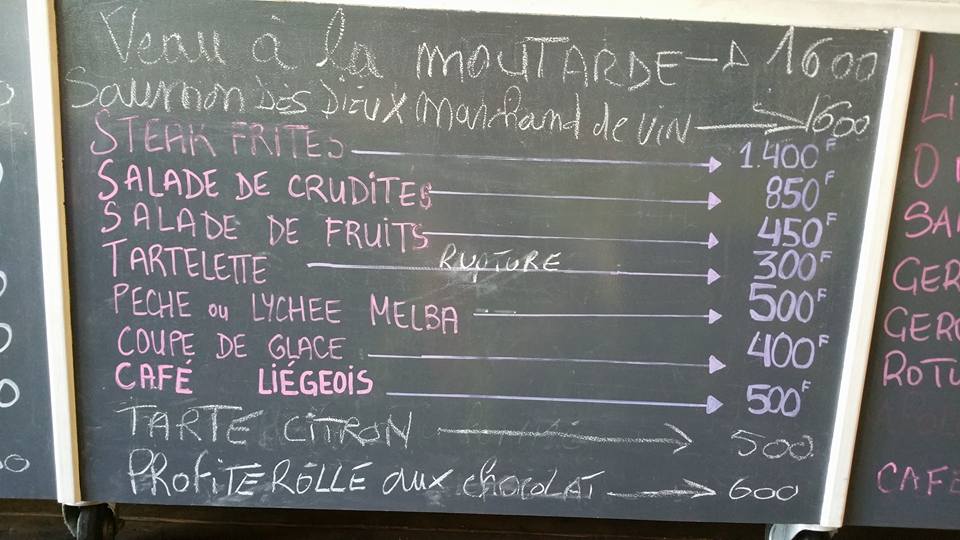 Veau à la MOUTARDE → 1600
Saumon Dès Dieux Marchand de VIN → 1600
STEAK FRITES → 1.400F
SALADE DE CRUDITES → 850F
SALADE DE FRUITS → 450F
TARTELETTE RUPTURE → 300F
PECHE ou LYCHEE MELBA → 500F
COUPE DE GLACE → 400F
CAFÉ LIÉGEOIS → 500F
TARTE CITRON → 500.
PROFITEROLLE aux chOCOLAT → 600
SA
GER
GERO
ROTU
CAFE